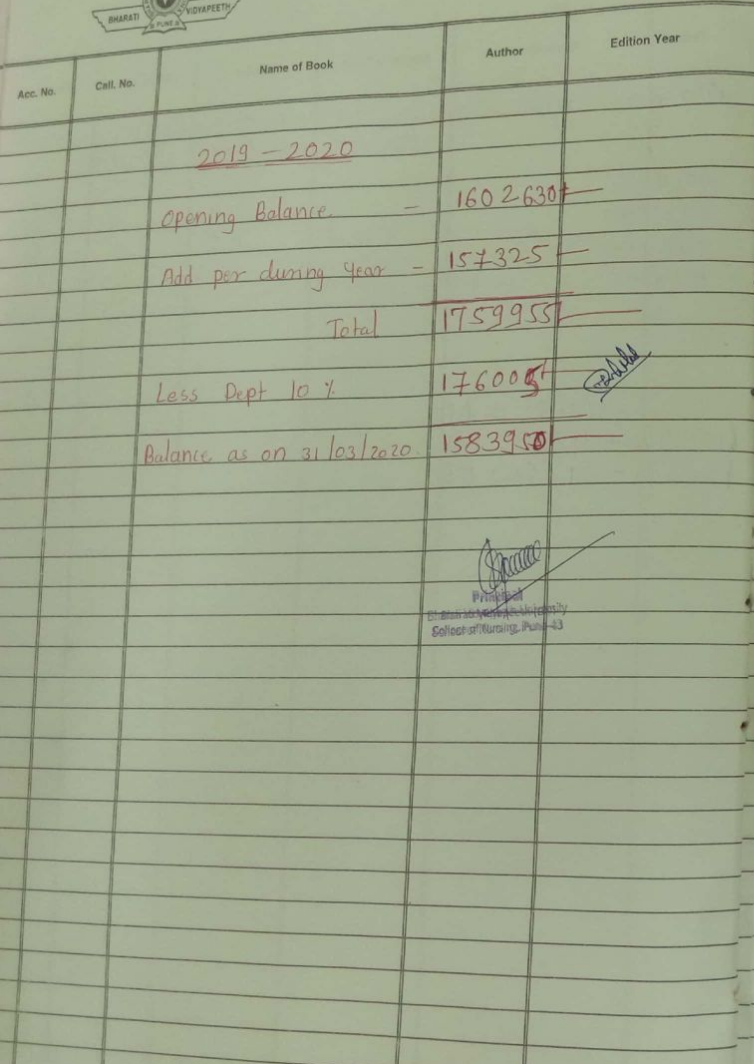 BHARATI VIDYAPEETH
PUNE
Acc. No. Call. No. Name of Book Author Edition Year
2019 - 2020
Opening Balance - 1602630/-
Add per during year - 157325/-
Total 1759955/-
Less Dept 10 % 176005/-
Balance as on 31/03/2020 1583950/-
Principal
College of Nursing, Pune-43